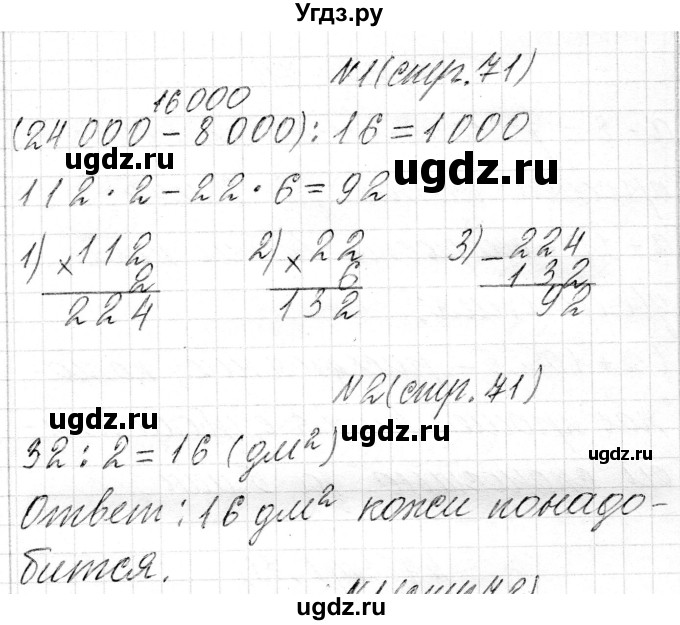 Угдз.ру
N1(стр.71)
16000
(24 000 - 8 000) : 16 = 1000
ugdz.ru ugdz.ru
112 · 2 - 22 · 6 = 92
1) × 112 2) × 22 3) - 224
2 6 132
224 132 92
N2(стр.71)
ugdz.ru ugdz.ru
32 : 2 = 16 (дм²)
ugdz.ru
Ответ: 16 дм² кожи понадо-
бится.
N1(стр.72)
ugdz.ru